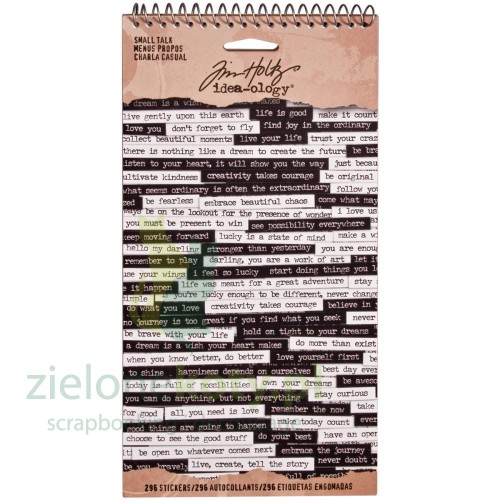 SMALL TALK
MENUS PROPOS
CHARLA CASUAL
Tim Holtz
idea-ology®
dream is a wish
live gently upon this earth life is good make it count
love you don't forget to fly find joy in the ordinary
collect beautiful moments live your life trust your
there is nothing like a dream to create the future be
listen to your heart, it will show you the way just becau
cultivate kindness creativity takes courage be original
what seems ordinary is often the extraordinary follow
be fearless embrace beautiful chaos come what may
always be on the lookout for the presence of wonder i love
you must be present to win see possibility everywhere
keep moving forward lucky is a state of mind make a
hello my darling stronger than yesterday you are enough
remember to play darling, you are a work of art let
use your wings i feel so lucky start doing things you
it happen life was meant for a great adventure stay
simple you're lucky enough to be different, never
do what you love creativity takes courage believe in
no journey is too great if you find what you seek never
be brave with your life hold on tight to your dreams
a dream is a wish your heart makes do more than exist
when you know better, do better love yourself first
to shine happiness depends on ourselves best day ever
today is full of possibilities own your dreams be
you can do anything, but not everything stay curious
for good all you need is love remember the now take
good things are going to happen make today count
choose to see the good stuff do your best have an
be open to whatever comes next embrace the journey
be brave! live, create, tell the story never doubt
296 STICKERS/296 AUTOCOLLANTS/296 ETIQUETAS ENGOMADAS
scrapbook